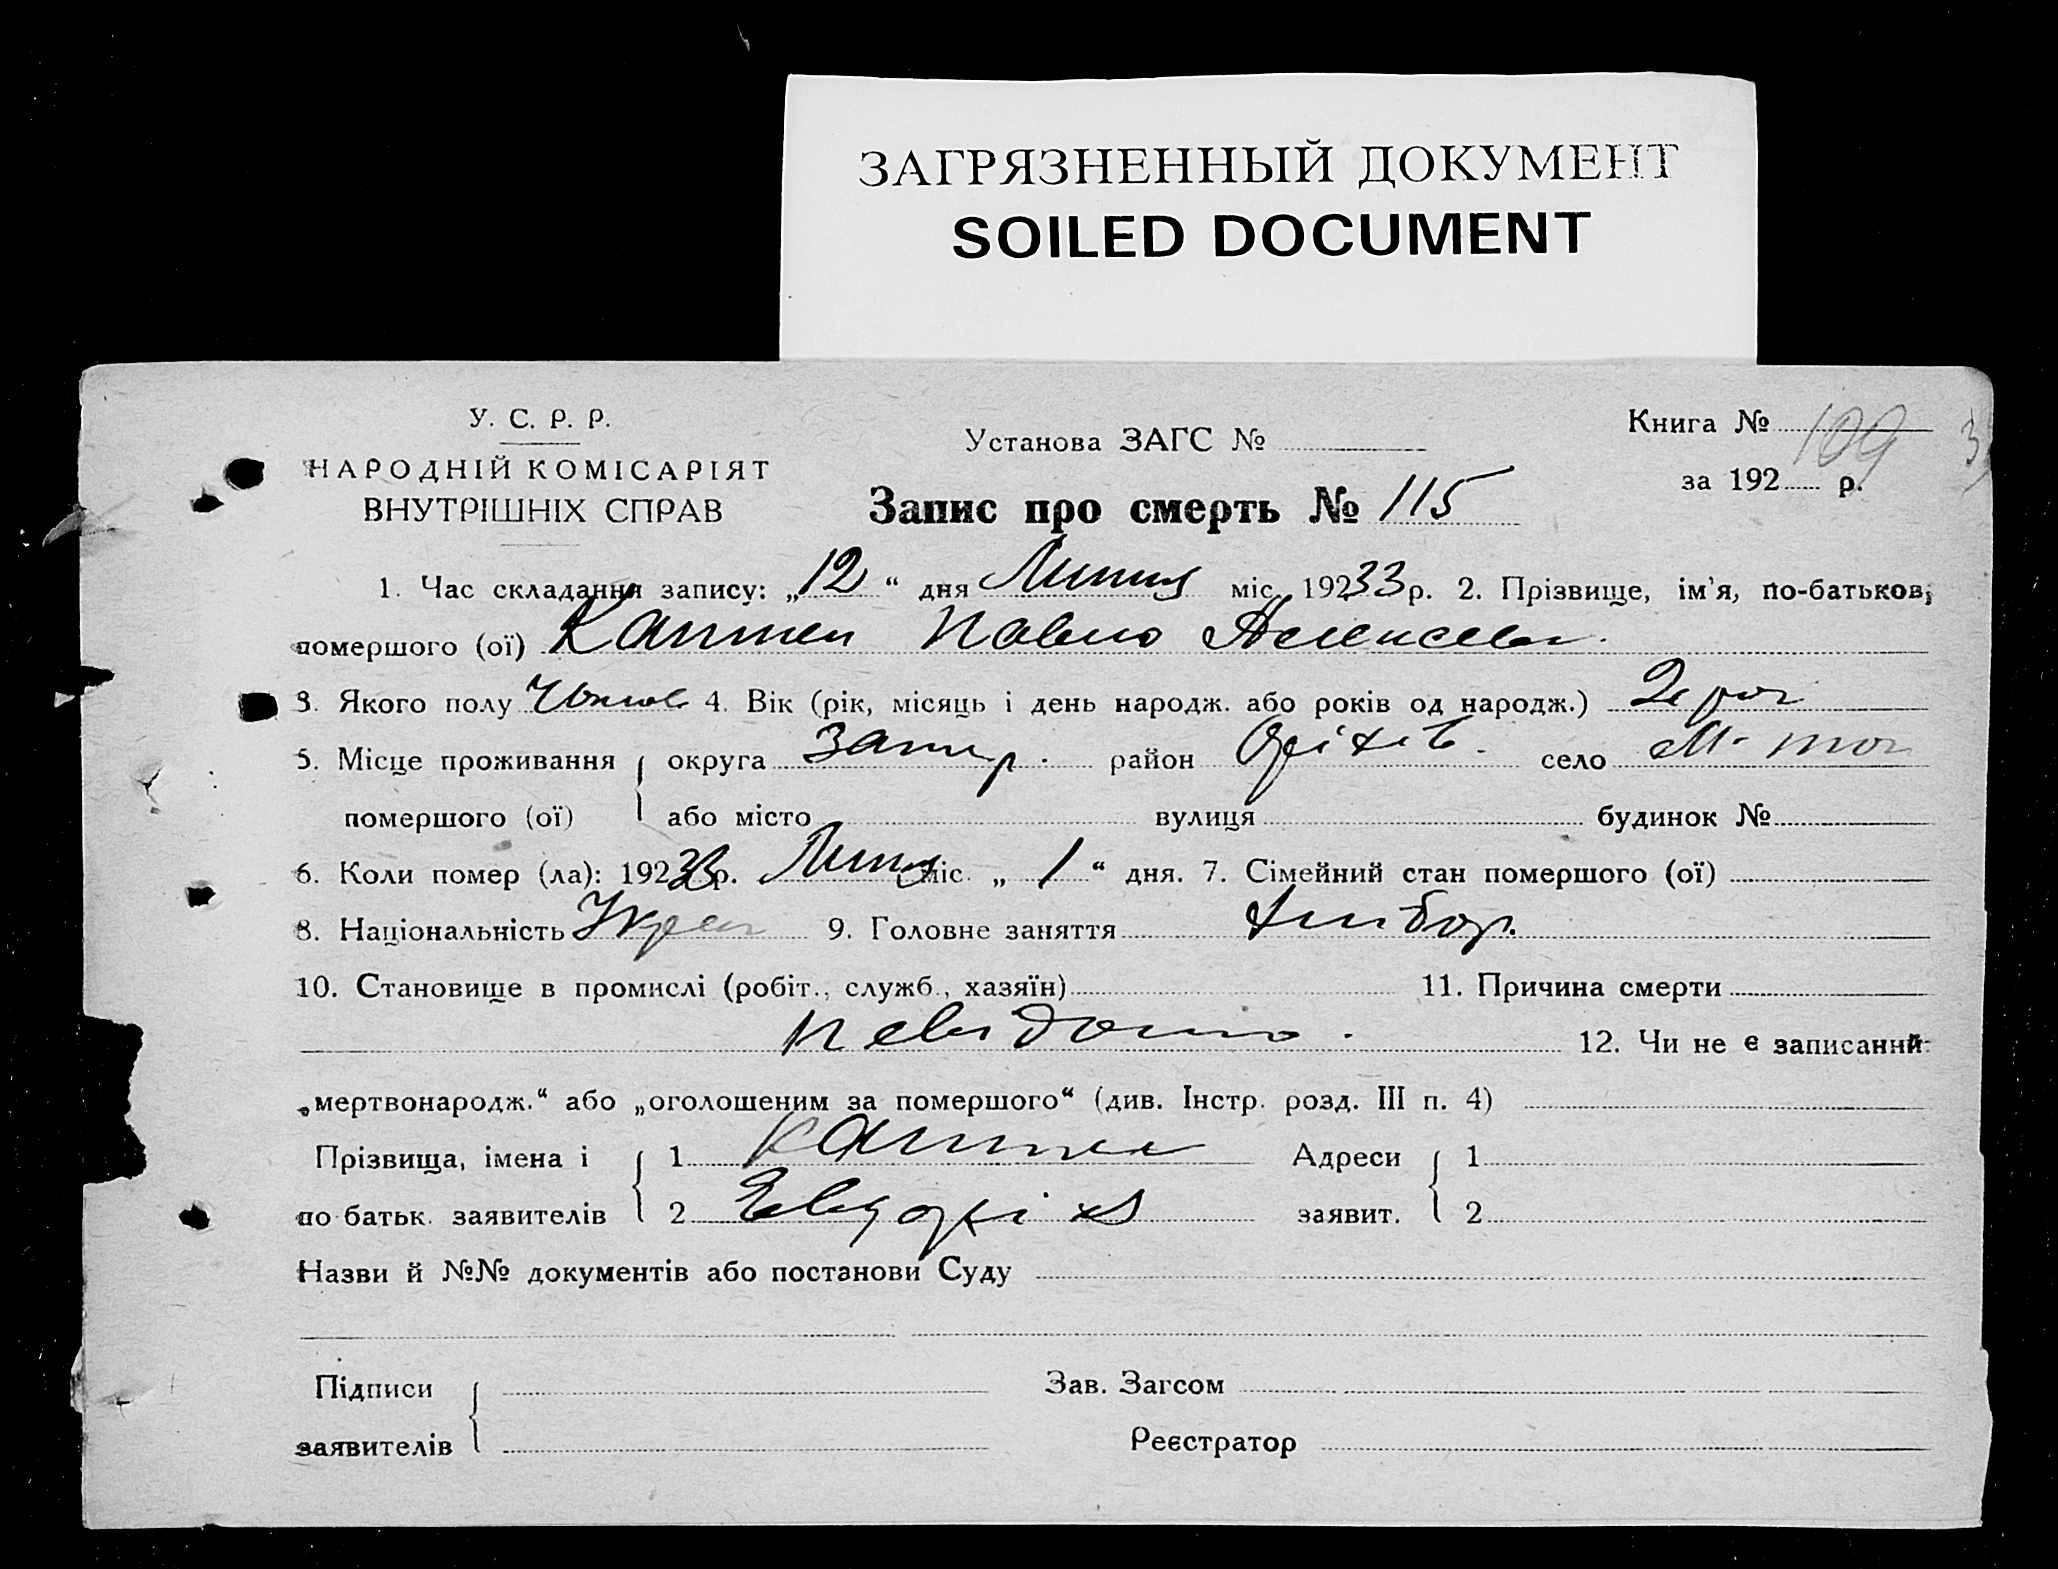 ЗАГРЯЗНЕННЫЙ ДОКУМЕНТ
SOILED DOCUMENT
У. С. Р. Р.
НАРОДНІЙ КОМІСАРІЯТ
ВНУТРІШНІХ СПРАВ
Установа ЗАГС №
Книга № 109
за 192 р.
Запис про смерть № 115
1. Час складання запису: „12“ дня Липня міс. 19233 р. 2. Прізвище, ім'я, по-батьков,
помершого (ої) Каптен Павло Алексеев.
3. Якого полу Чолов 4. Вік (рік, місяць і день народж. або років од народж.) 2 рок
5. Місце проживання округа Запор. район Оріхів. село М. ток
помершого (ої) або місто вулиця будинок №
6. Коли помер (ла): 19233 р. Липня міс. „1“ дня. 7. Сімейний стан помершого (ої)
8. Національність Украін 9. Головне заняття хлибор.
10. Становище в промислі (робіт., служб., хазяїн) 11. Причина смерти
невідомо. 12. Чи не є записаний
„мертвонародж.“ або „оголошеним за помершого“ (див. Інстр. розд. III п. 4)
Прізвища, імена і 1 Каптен Адреси 1
по батьк. заявителів 2 Евдокія заявит. 2
Назви й №№ документів або постанови Суду
Підписи Зав. Загсом
заявителів Реєстратор